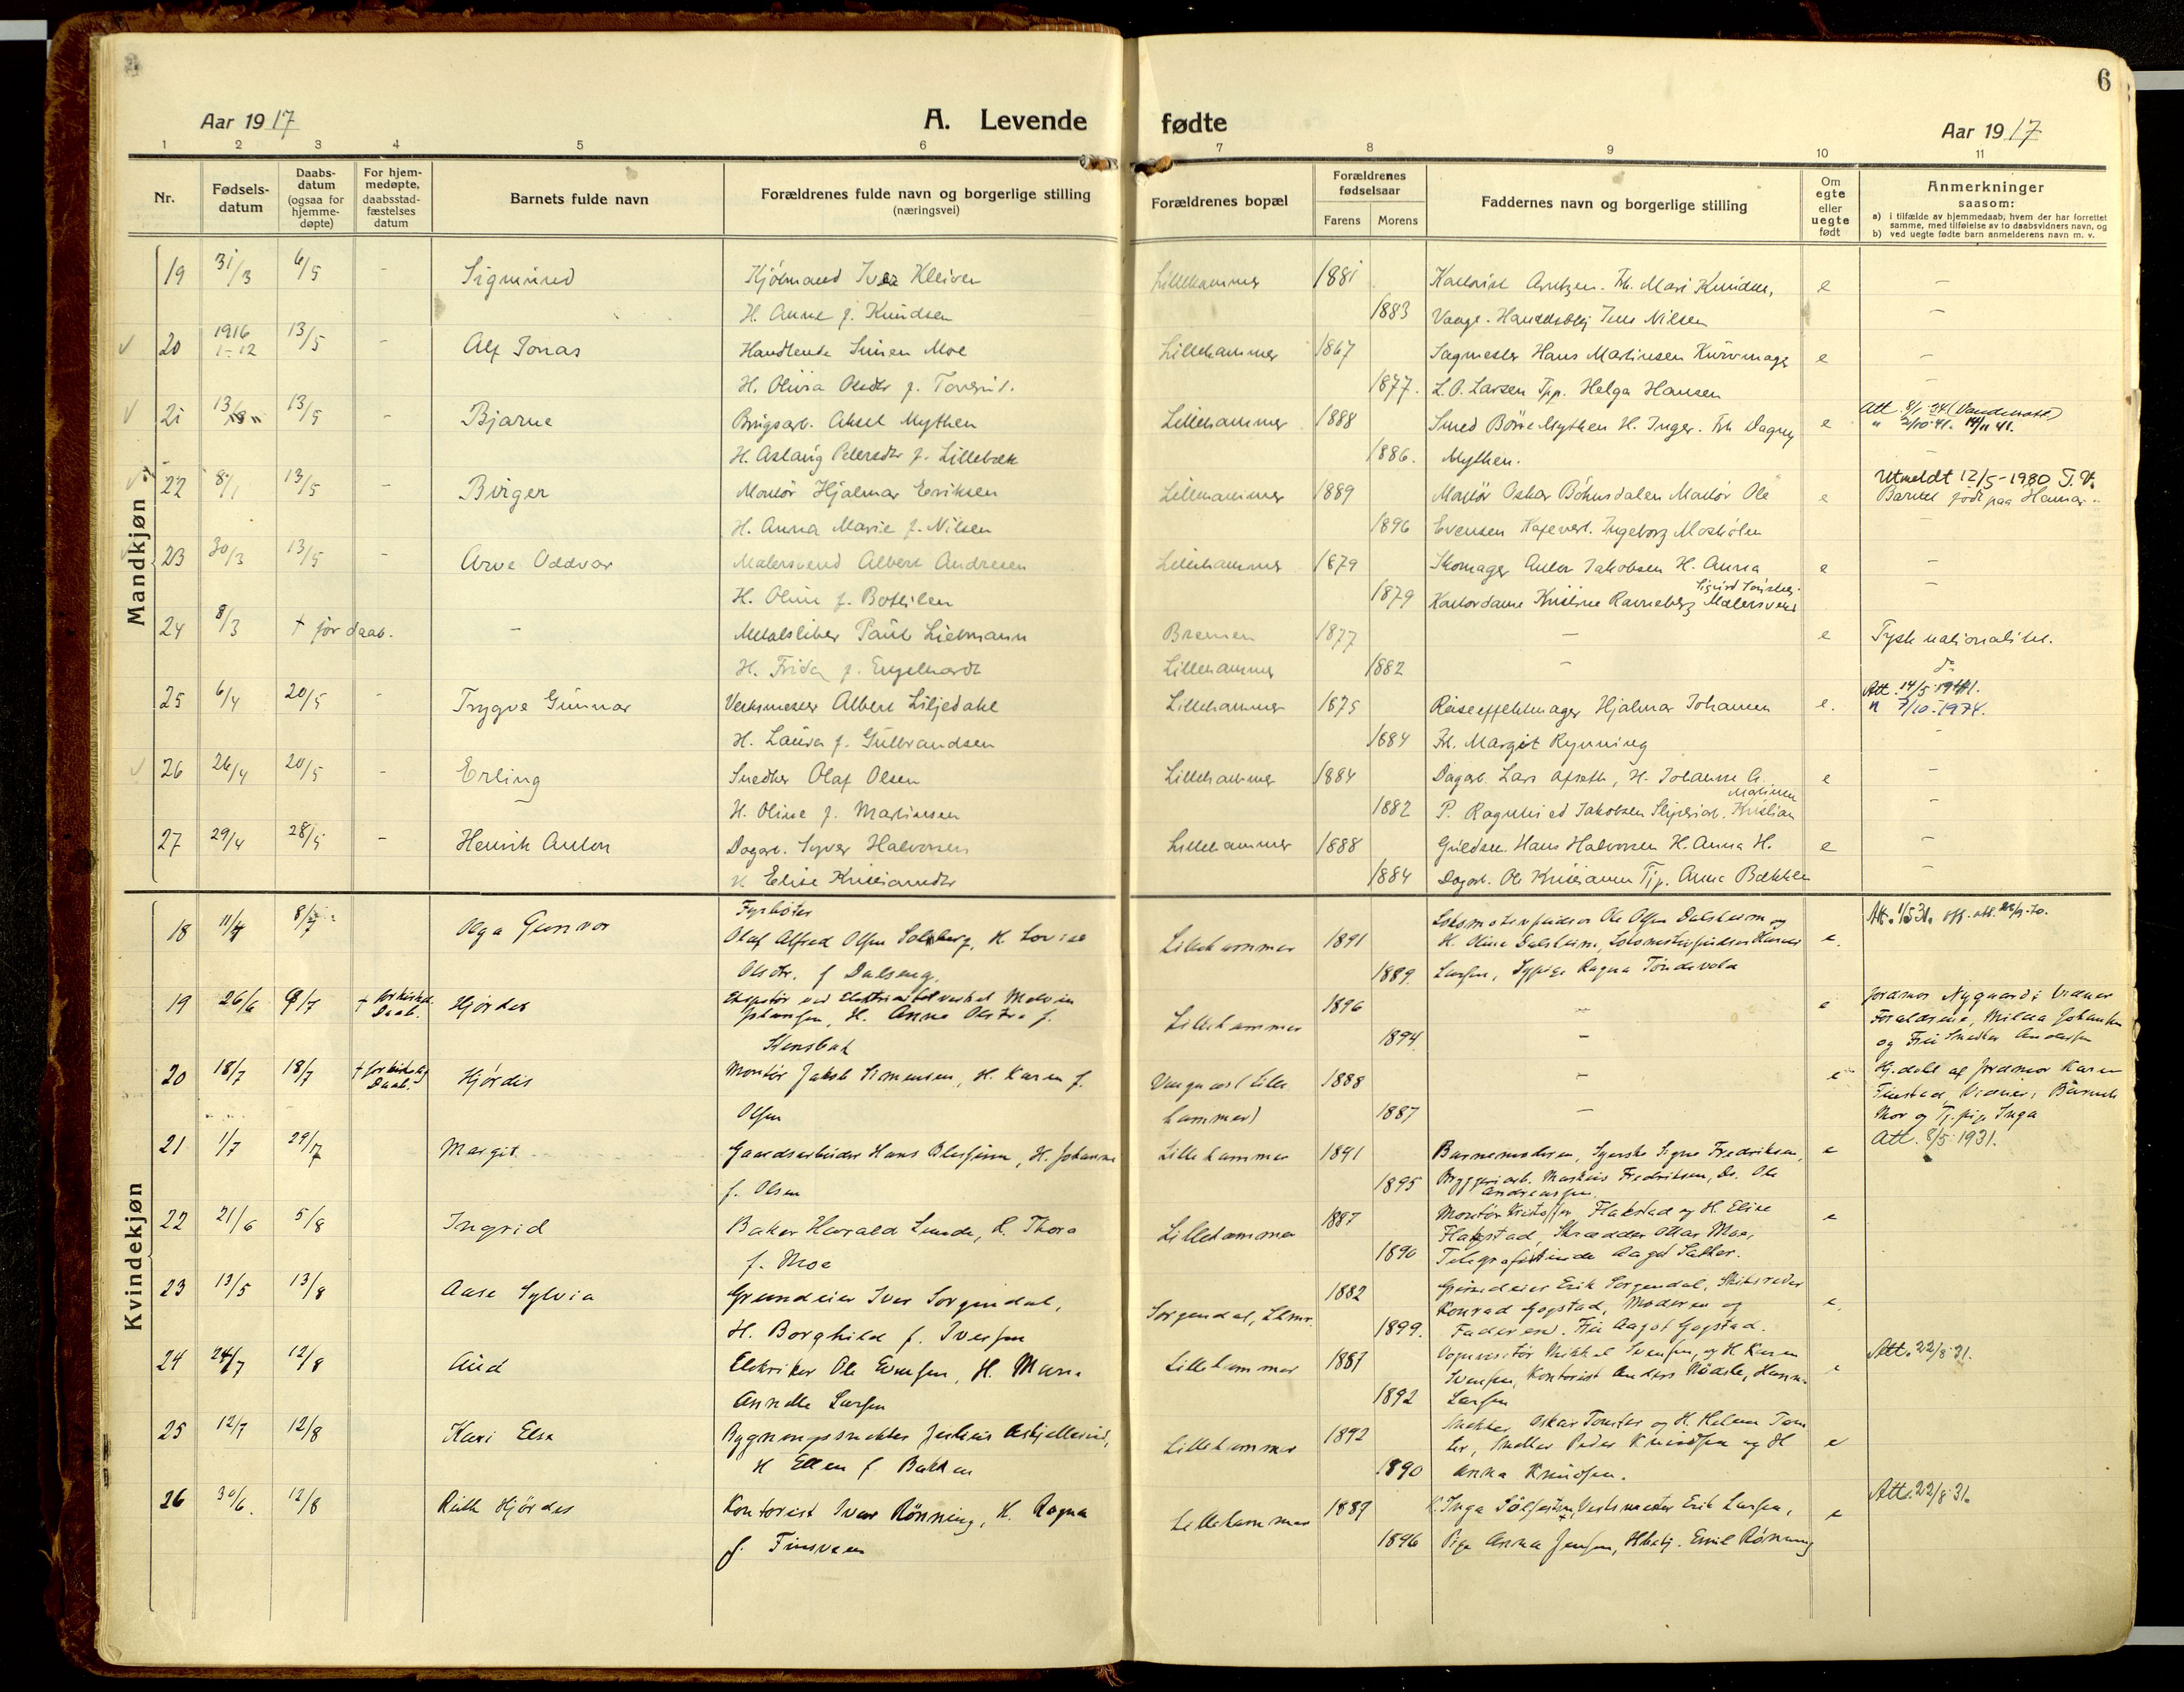 6
Aar 1917
A. Levende fødte
Aar 1917
1 2 3 4 5 6 7 8 9 10 11
Nr.
Fødsels-
datum
Daabs-
datum
(ogsaa for
hjemme-
døpte)
For hjem-
medøpte,
daabsstad-
fæstelses
datum
Barnets fulde navn
Forældrenes fulde navn og borgerlige stilling
(næringsvei)
Forældrenes bopæl
Forældrenes
fødselsaar
Farens Morens
Faddernes navn og borgerlige stilling
Om
egte
eller
uegte
født
Anmerkninger
saasom:
a) i tilfælde av hjemmedaab, hvem der har forrettet
samme, med tilføielse av to daabsvidners navn, og
b) ved uegte fødte barn anmelderens navn m. v.
Mandkjøn
19 31/3 6/5 - Sigmund Kjøbmand Iver Kleiven Lillehammer 1881 Kontorist Arntzen. Frk. Mari Knudsen, e -
H. Anne f. Knudsen 1883 Vaage. Handelsbtj Jens Nilsen -
20 1916 1-12 13/5 - Alf Jonas Handlende Simen Moe Lillehammer 1867 Sagmester Hans Martinsen Kurvmager e -
H. Olivia Olsdtr f. Toverud. 1877. L.O. Larsen Tpp. Helga Hansen -
21 13/5 - Bjarne Aksel Mythen Lillehammer 1888 Smed Mythen H. Inger. Frk Dagny e Att. 8/1 34
H. Aslaug Pedersdtr f. Lillebæk 1886. Mythen. -
22 8/1 13/5 - Birger Montør Hjalmar Eriksen Lillehammer 1889 Montør Oskar Böhnsdalen Montør Ole e Utmeldt 12/5-1980 T.V.
Barnet født paa Hamar
H. Anna Marie f. Nilsen 1896 Evensen Kafevert. Ingeborg Moshølen -
23 30/3 13/5 - Arve Oddvar Malersvend Albert Andresen Lillehammer 1879 Skomager Anton Jakobsen H. Anna e -
H. Oline f. Bottilen 1879 Kontordame Kristine Ravneberg Malersvend -
24 8/3 † før daab. - Metalsliber Paul Liebmann Bremen 1877 - e Tysk nationalitet.
H. Frida f. Engelhardt Lillehammer 1882 - do
25 6/4 20/5 - Trygve Gunnar Verksmester Albert Liljedahl Lillehammer 1875 Reiseeffektmager Hjalmar Johansen e. Att. 14/5 1941.
" 7/10-1974.
H. Laura f. Gulbrandsen 1884 Frk. Margit Rynning -
26 26/4 20/5 - Erling Snedker Olaf Olsen Lillehammer 1884 Dagarb. Lars Afseth, H. Johanne e -
H. Oline f. Martinsen 1882 P. Ragnhild Jakobsen Sliperiarb. Kristian Martinsen -
27 29/4 28/5 - Henrik Anton Dagarb. Syver Halvorsen Lillehammer 1888 Guldsm. Hans Halvorsen H. Anna H. e -
H Elise Kristiansdtr 1884 Dagarb. Ole Kristiansen Tjp. Anna Bækken -
Kvindekjøn
18 8/7 Olga Gunvor Fyrbøter
Olaf Alfred Olsen Solberg, H. Lovise Lillehammer 1891 Lokomotivfører Ole Olsen Dalsheim og
H. Oline Dalsheim, e. Att. 1/5 31.
Olsdtr. f Dalseng. 1889. Larsen, Sypige Ragna Töndevold
19 26/6 8/7 † før kirkel. Daab. Hjördis ved Elektricitetsverket Melvin
Johansen, H. Anna Olstra f.
Stensbak Lillehammer 1896 - e Jordmor Nygaard; Vidner
Forældrene, Milda Johansen
1894 - og Fru Snedker Andersen
20 18/7 18/7 † før kirkelig Daab. Hjördis Montør Jakob Simensen, H. Karen f. (Lille 1888 - e Hj.døbt af Jordmor Karen
Olsen hammer) 1887 - Finstad, Vidner; Barnets
Mor og Tj. pige Inga
21 1/7 29/7 Margit Gaardsarbeider Hans , H. Johanne Lillehammer 1891 Barnemoderen, Syerske Signe Fredriksen, e Att. 8/5 1931.
f. Olsen 1895 Bryggeriarb. Fredriksen, Do. Ole
Andreassen.
22 21/6 5/8 Ingrid Baker Harald Lunde, H. Thora Lillehammer 1887 Montør Kristoffer Flakstad og H. Elise e
f. Moe 1890 Flakstad, Skrædder Ottar Moe,
Telegrafistinde Aagot Sætter.
23 13/5 13/8 Aase Sylvia Grundeier Iver Sorgendal, Sorgendal, Lhmr. 1882 Grundeier Erik Sorgendal, e.
Konrad Gogstad, Moderen og
H. Borghild f. Iversen 1899. Faderen. Fru Aagot Gogstad.
24 24/7 12/8 Aud Elektriker Ole Evensen, H. Marie Lillehammer 1887 Vognvisitør Mikkel Svensen, og H Karen e Att. 22/8 31.
Svensen, Kontorist Anders
Annette Larsen 1892 Larsen
25 12/7 12/8 Kari Else Bygningssnekker Lillehammer 1892 Snekker Oskar Tomter og H. Helene Tom
ter, Snekker Peder Knudsen og H e
H Ellen f. Bakken 1890 Anna Knudsen.
26 30/6. 12/8 Ruth Hjördis Kontorist Ivar Rönning, H. Ragna Lillehammer 1887 Verksmester Erik Larsen, e Att. 22/8 31.
f. Finsveen 1896 Pige Anna Jensen, Emil Rönning